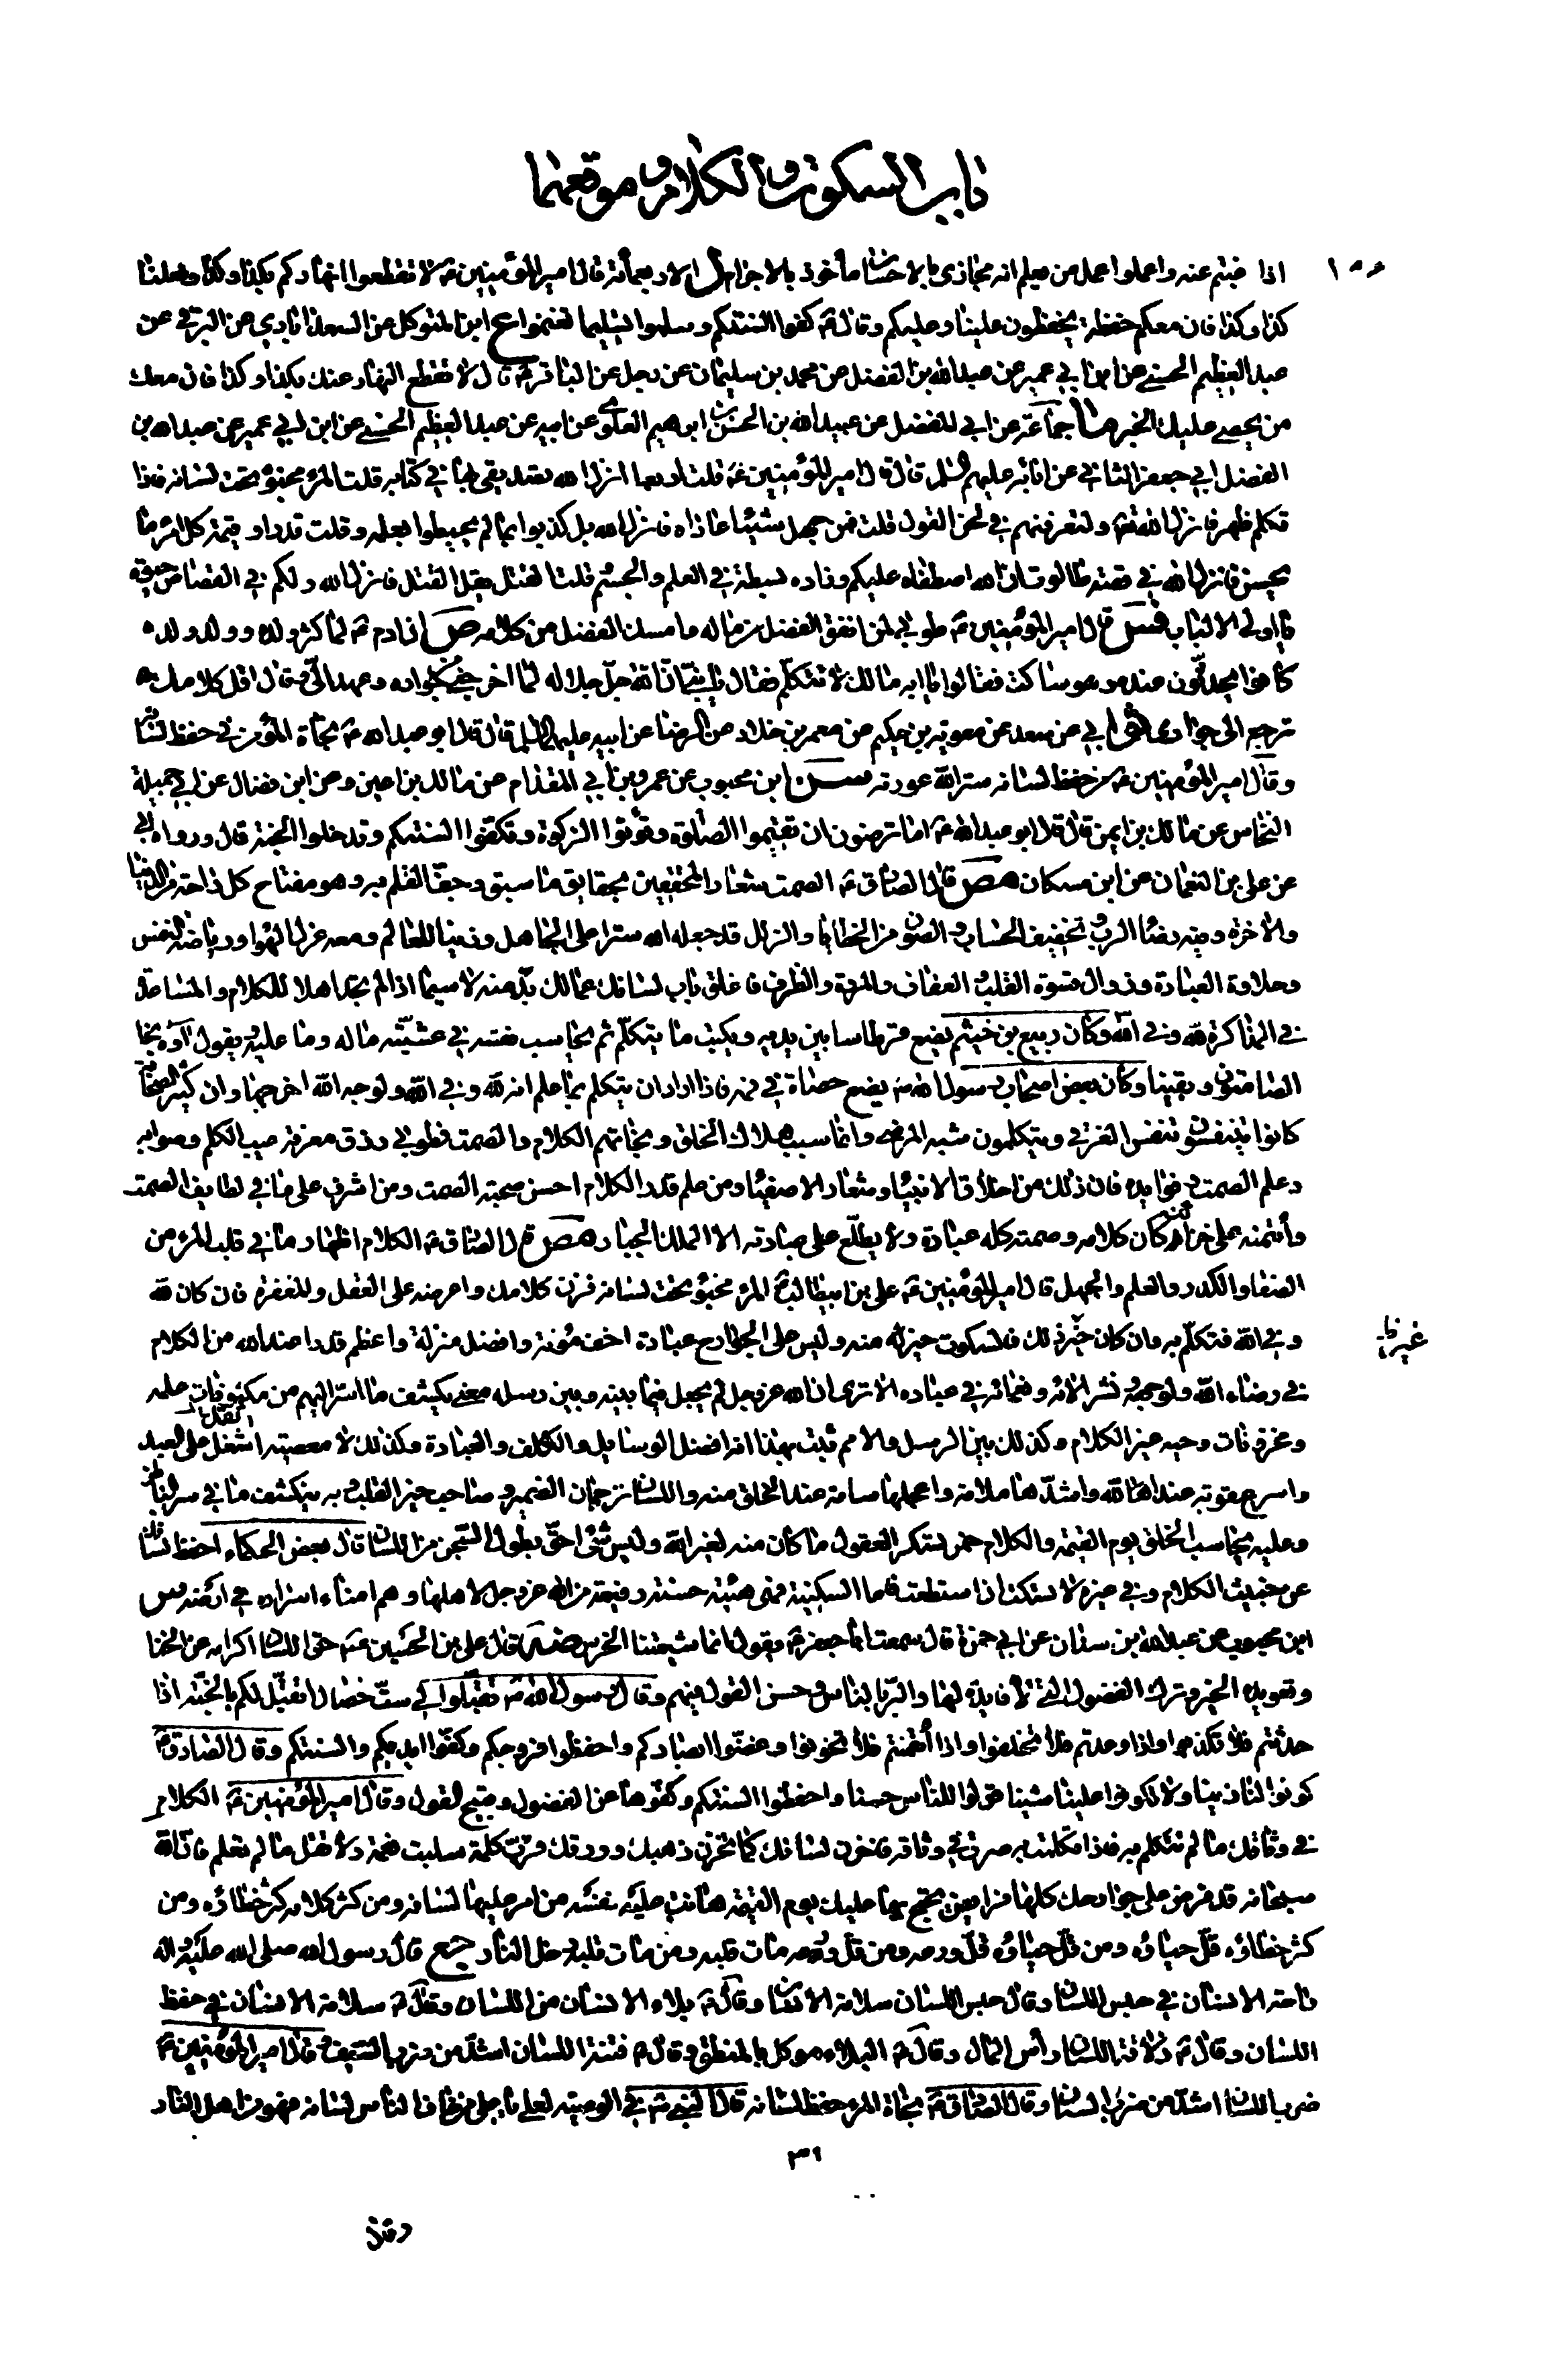 باب السكوت والكلام وموقعهما
١٥٤
اذا غبتم عنه واعملوا عمل من يعلم انه مجازى بالاحسان مأخوذ بالاجرام ل الاربعمأة قال امير المؤمنين ع لا تقطعوا انهاركم بكذا وكذا وفعلنا
كذا وكذا فان معكم حفظة يحفظون علينا وعليكم وقال ع كفوا السنتكم وسلموا تسليما تغنموا ع ابن المتوكل عن السعدآبادي عن البرقي عن
عبد العظيم الحسني عن ابن ابي عمير عن عبد الله بن الفضل عن محمد بن سليمان عن رجل عن الباقر ع قال لا تقطع النهار عنك بكذا وكذا فان معك
من يحصي عليك الخبر ما جماعة عن ابي المفضل عن عبيد الله بن الحسن بن ابراهيم العلوي عن ابيه عن عبد العظيم الحسني عن ابن ابي عمير عن عبد الله بن
الفضل ابي جعفر الثاني عن ابائه عليهم السلم قال قال امير المؤمنين ع قلت اربعا انزل الله تصديقي بها في كتابه قلت المرء مخبؤ تحت لسانه فاذا
تكلم ظهر فانزل الله تعالى ولتعرفنهم في لحن القول قلت فمن جهل شيئا عاداه فانزل الله بل كذبوا بما لم يحيطوا بعلمه وقلت قدر او قيمة كل امرء ما
يحسن فانزل الله في قصة طالوت ان الله اصطفاه عليكم وزاده بسطة في العلم والجسم قلت القتل يقل القتل فانزل الله ولكم في القصاص حيوة
يا اولي الالباب فس قال امير المؤمنين ع طوبى لمن انفق الفضل من ماله وامسك الفضل من كلامه ص ان ادم ع لما كثر ولده وولد ولده
كانوا يحدثون عنده وهو ساكت فقالوا يا ابه مالك لا تتكلم فقال يا بني ان الله جل جلاله لما اخرجني من جواره عهد الي وقال اقل كلامك
ترجع الى جواري ثو ابي عن سعد عن معوية بن حكيم عن معمر بن خلاد عن الرضا عن ابيه عليهما السلم قال قال ابو عبد الله ع نجاة المؤمن في حفظ لسانه
وقال امير المؤمنين ع من حفظ لسانه ستر الله عورته سن ابن محبوب عن عمرو بن ابي المقدام عن مالك بن اعين وعن ابن فضال عن ابي جميلة
النخاس عن مالك بن اعين قال قال ابو عبد الله ع اما ترضون ان تقيموا الصلوة وتؤتوا الزكوة وتكفوا السنتكم وتدخلوا الجنة قال ورواه ابي
عن علي بن النعمان عن ابن مسكان مص قال الصادق ع الصمت شعار المحققين بحقايق ما سبق وجف القلم به وهو مفتاح كل راحة من الدنيا
والاخرة وفيه رضا الرب وتخفيف الحساب والصون من الخطايا والزلل قد جعله الله سترا على الجاهل وزينا للعالم ومعه عزل الهوا ورياضة النفس
وحلاوة العبادة وزوال قسوة القلب والعفاف والمروة والظرف فاغلق باب لسانك عما لك بد منه لا سيما اذا لم تجد اهلا للكلام والمساعد
في المذاكرة لله وفي الله وكان ربيع بن خيثم يضع قرطاسا بين يديه ويكتب ما يتكلم ثم يحاسب نفسه في عشيته ما له وما عليه ويقول آوه نجا
الصامتون وبقينا وكان بعض اصحاب رسول الله ص يضع حصاة في فمه فاذا اراد ان يتكلم بما علم انه لله وفي الله ولوجه الله اخرجها وان كثيرا من الصحابة
كانوا يتنفسون تنفس الغرقى ويتكلمون شبه المرضى وانما سبب هلاك الخلق ونجاتهم الكلام والصمت فطوبى لمن رزق معرفة عيب الكلم وصوابه
وعلم الصمت وفوايده فان ذلك من اخلاق الانبياء وشعار الاصفياء ومن علم قدر الكلام احسن صحبة الصمت ومن اشرف على ما في لطايف الصمت
وأتمنه على خزائنه كان كلامه وصمته كله عبادة ولا يطلع على عبادته الا الملك الجبار مص قال الصادق ع الكلام اظهار ما في قلب المرء من
الصفا والكدر والعلم والجهل قال امير المؤمنين ع علي بن ابيطالب ع المرء مخبؤ تحت لسانه فزن كلامك واعرضه على العقل والمعرفة فان كان لله
وفي الله فتكلم به وان كان غير ذلك فالسكوت خير منه وليس على الجوارح عبادة اخف مؤنة وافضل منزلة واعظم قدرا عند الله من الكلام
في رضاء الله ولوجهه ونشر الائه ونعمائه في عباده الا ترى ان الله عز وجل لم يجعل فيما بينه وبين رسله معنى يكشف ما اسر اليهم من مكنونات علمه
ومخزونات وحيه غير الكلام وكذلك بين الرسل والامم فثبت بهذا انه افضل الوسايل والكلف والعبادة وكذلك لا معصية اشغل على العبد
واسرع عقوبة عند الله واشدها ملامة واعجلها سامة عند الخلق منه واللسان ترجمان الضمير وصاحب خبر القلب وبه ينكشف ما في سر الباطن
وعليه يحاسب الخلق يوم القيمة والكلام خمر تسكر العقول ما كان منه لغير الله وليس شئ احق بطول السجن من اللسان قال بعض الحكماء احفظ لسانك
عن خبيث الكلام وفي غيره لا تسكت ان استطعت فاما السكينة فهي هيئة حسنة رفيعة من الله عز وجل لاهلها وهم امناء اسراره في ارضه س
ابن محبوب عن عبد الله بن سنان عن ابي حمزة قال سمعت ابا جعفر ع يقول انما شيعتنا الخرس ضه قال علي بن الحسين ع حق اللسان اكرامه عن الخنا
وتعويده الخير وترك الفضول التي لا فايدة لها والبر بالناس وحسن القول فيهم وقال رسول الله ص تقبلوا لي ست خصال اتقبل لكم بالجنة اذا
حدثتم فلا تكذبوا واذا وعدتم فلا تخلفوا واذا ائتمنتم فلا تخونوا وغضوا ابصاركم واحفظوا فروجكم وكفوا ايديكم والسنتكم وقال الصادق ع
كونوا لنا زينا ولا تكونوا علينا شينا قولوا للناس حسنا واحفظوا السنتكم وكفوها عن الفضول وقبيح القول وقال امير المؤمنين ع الكلام
في وثاقك ما لم تتكلم به فاذا تكلمت به صرت في وثاقه فاخزن لسانك كما تخزن ذهبك وورقك فرب كلمة سلبت نعمة ولا تقل ما لم تعلم فان الله
سبحانه قد فرض على جوارحك كلها فرايض يحتج بها عليك يوم القيمة هانت عليه نفسه من امر عليها لسانه ومن كثر كلامه كثر خطاؤه ومن
كثر خطاؤه قل حياؤه ومن قل حياؤه قل ورعه ومن قل ورعه مات قلبه ومن مات قلبه دخل النار جع قال رسول الله صلى الله عليه واله
راحة الانسان في حبس اللسان وقال حبس اللسان سلامة الانسان وقال ع بلاء الانسان من اللسان وقال ع سلامة الانسان في حفظ
اللسان وقال ع ذلاقة اللسان رأس المال وقال ع البلاء موكل بالمنطق وقال ع فتنة اللسان اشد من ضرب السيف قال امير المؤمنين ع
ضرب اللسان اشد من ضرب السنان وقال الصادق ع نجاة المرء حفظ لسانه قال النبي ص في الوصية لعلي يا علي من خاف الناس لسانه فهو من اهل النار
٣٩